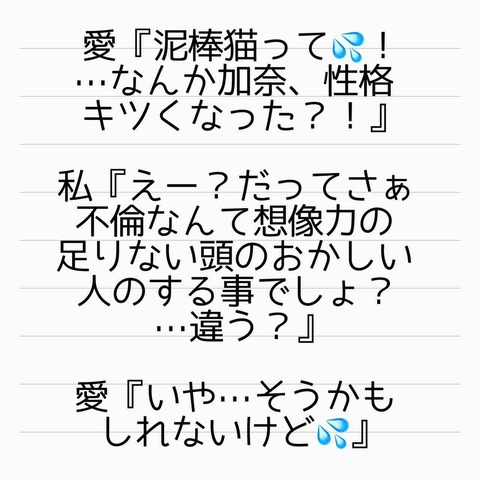 愛『泥棒猫って💦！
…なんか加奈、性格
キツくなった？！』
私『えー？だってさぁ
不倫なんて想像力の
足りない頭のおかしい
人のする事でしょ？
…違う？』
愛『いや…そうかも
しれないけど💦』